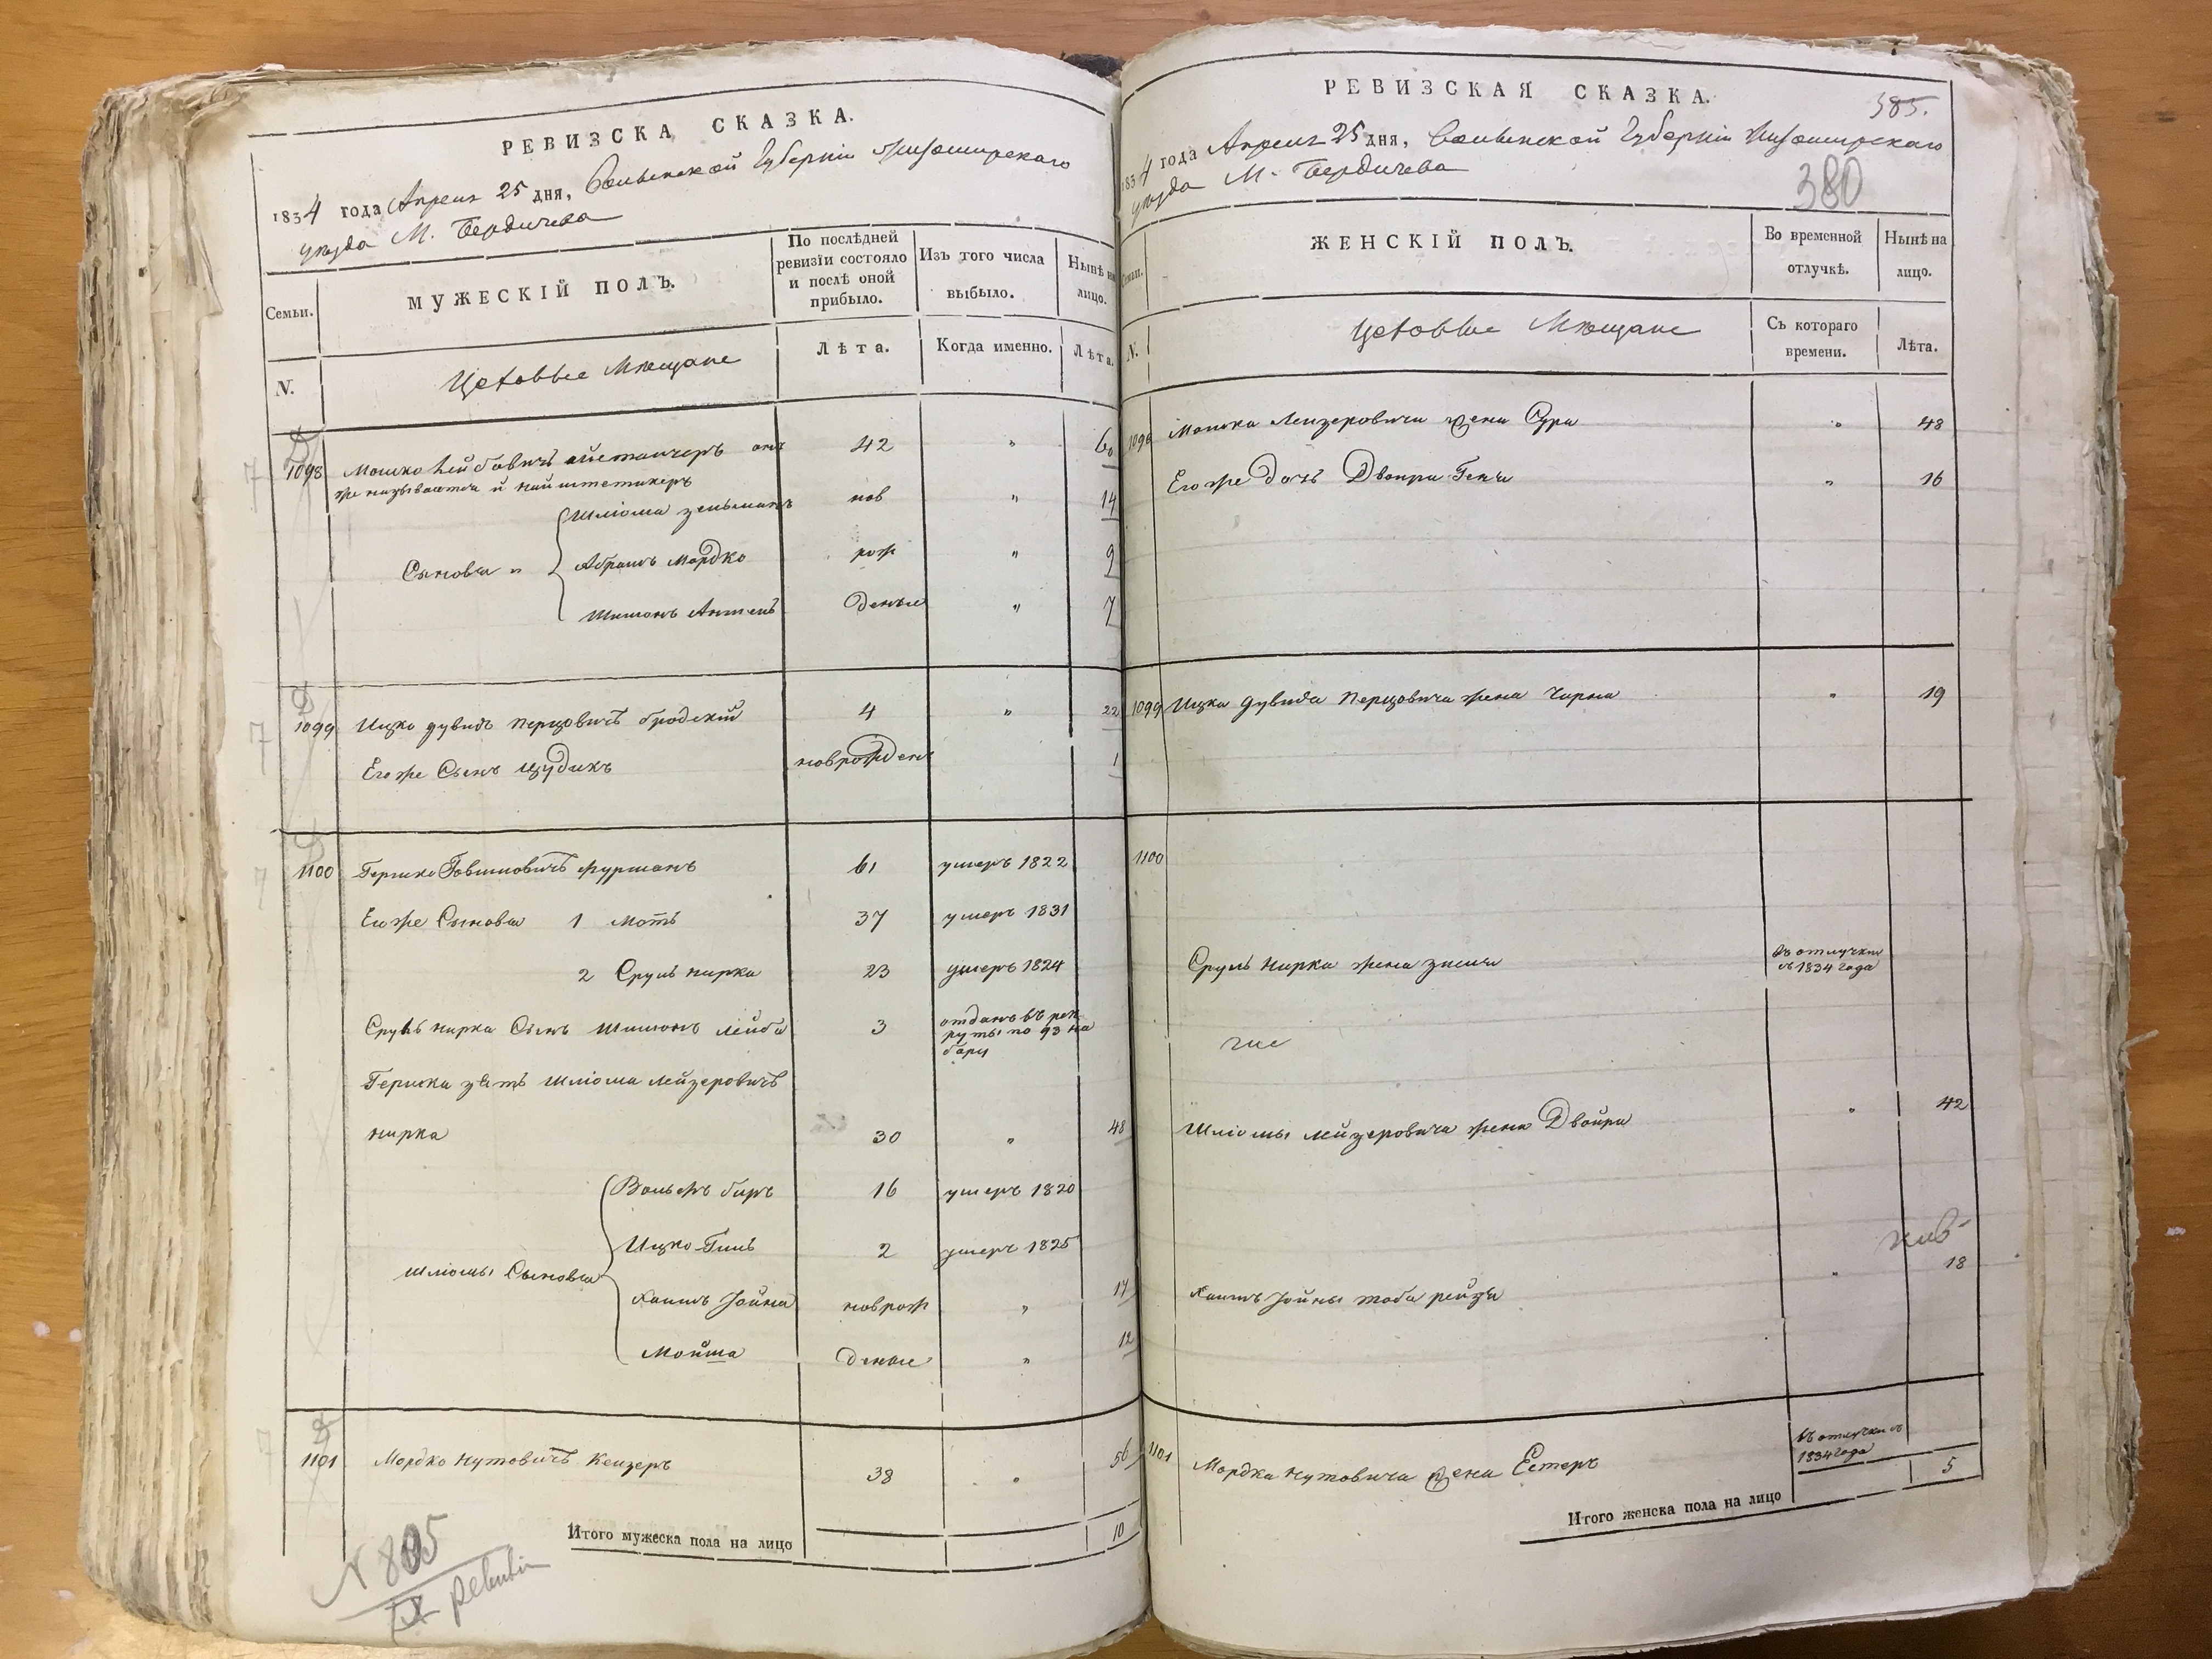 РЕВИЗСКА СКАЗКА.
1834 года Апреля 25 дня, Волынской Губернии Житомирскаго
уезда М. Бердичева
Семьи.
МУЖЕСКІЙ ПОЛЪ.
По послѣдней ревизіи состояло и послѣ оной прибыло.
Изъ того числа выбыло.
Нынѣ на лицо.
N.
Цеховые Мещане
Лѣта.
Когда именно.
Лѣта.
1098 Мошко Лейбовичъ онъ 42 " 60
же называется и
Шліома Зельманъ нов " 14
Сыновья " Абрамъ Мордко рож " 9
Шимонъ Аншель деные " 7
1099 Ицко Дувидъ Перцовичъ Бродскій 4 " 22
Его же Сынъ Цудикъ новрожден 1
1100 Гершко Фурманъ 61 умеръ 1822
Его же Сыновья 1 Моть 37 умеръ 1831
2 Сруль Кирка 23 умеръ 1824
Сруль Кирка Сынъ Шимонъ Лейба 3 отданъ въ рек
руты по 93 на
бору
Гершка зять Шліома Лейзеровичъ
Кирка 30 " 48
Вольфъ Беръ 16 умеръ 1820
Ицко 2 умеръ 1825
Шліомы Сыновья
Хаимъ Іойна новрож " 17
Мойша деные " 12
1101 Мордко Нутовичъ Кейзеръ 38 " 56
Итого мужеска пола на лицо 10
N 805
IX ревизіи
РЕВИЗСКАЯ СКАЗКА.
385.
1834 года Апреля 25 дня, Волынской Губерніи Житомирскаго
уезда М. Бердичева
380
Семьи.
ЖЕНСКІЙ ПОЛЪ.
Во временной отлучкѣ.
Нынѣ на лицо.
N.
Цеховые Мещане
Съ котораго времени.
Лѣта.
1098 Мошка Лейзеровича жена Сура " 48
Его же дочь Двойра Геня " 16
1099 Ицка Дувида Перцовича жена Чарна " 19
1100
Сруль Кирка жена Зисля въ отлучки
съ 1834 года
Шліомы Лейзеровича жена Двойра " 42
Хаимъ Іойны Тоба Рейзя " 18
1101 Мордка Нутовича жена Естеръ въ отлучки съ
1834 года
Итого женска пола на лицо 5